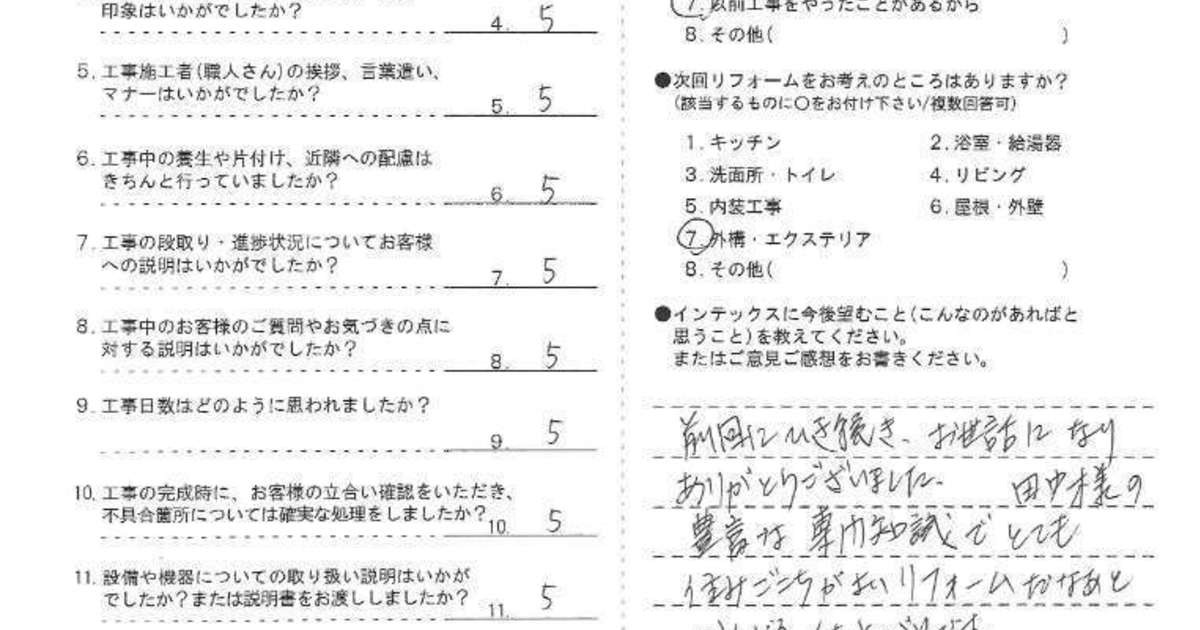 印象はいかがでしたか？
4. 5
5. 工事施工者(職人さん)の挨拶、言葉遣い、
マナーはいかがでしたか？
5. 5
6. 工事中の養生や片付け、近隣への配慮は
きちんと行っていましたか？
6. 5
7. 工事の段取り・進捗状況についてお客様
への説明はいかがでしたか？
7. 5
8. 工事中のお客様のご質問やお気づきの点に
対する説明はいかがでしたか？
8. 5
9. 工事日数はどのように思われましたか？
9. 5
10. 工事の完成時に、お客様の立合い確認をいただき、
不具合箇所については確実な処理をしましたか？
10. 5
11. 設備や機器についての取り扱い説明はいかが
でしたか？または説明書をお渡ししましたか？
11. 5
7. 以前工事をやったことがあるから
8. その他( )
●次回リフォームをお考えのところはありますか？
(該当するものに〇をお付け下さい/複数回答可)
1. キッチン 2. 浴室・給湯器
3. 洗面所・トイレ 4. リビング
5. 内装工事 6. 屋根・外壁
7. 外構・エクステリア
8. その他( )
●インテックスに今後望むこと(こんなのがあればと
思うこと)を教えてください。
またはご意見ご感想をお書きください。
前回にひき続き、お世話になり
ありがとうございました。 田中様の
豊富な専門知識でとても
住みごこちがよいリフォームだなあと